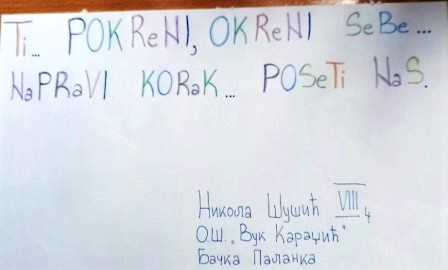 Ti... POKReNI, OKReNI SeBe...
NaPRaVI KORaK... POSeTi NaS.
Никола Шушић VIII 4
О.Ш. „Вук Караџић"
Бачка Паланка